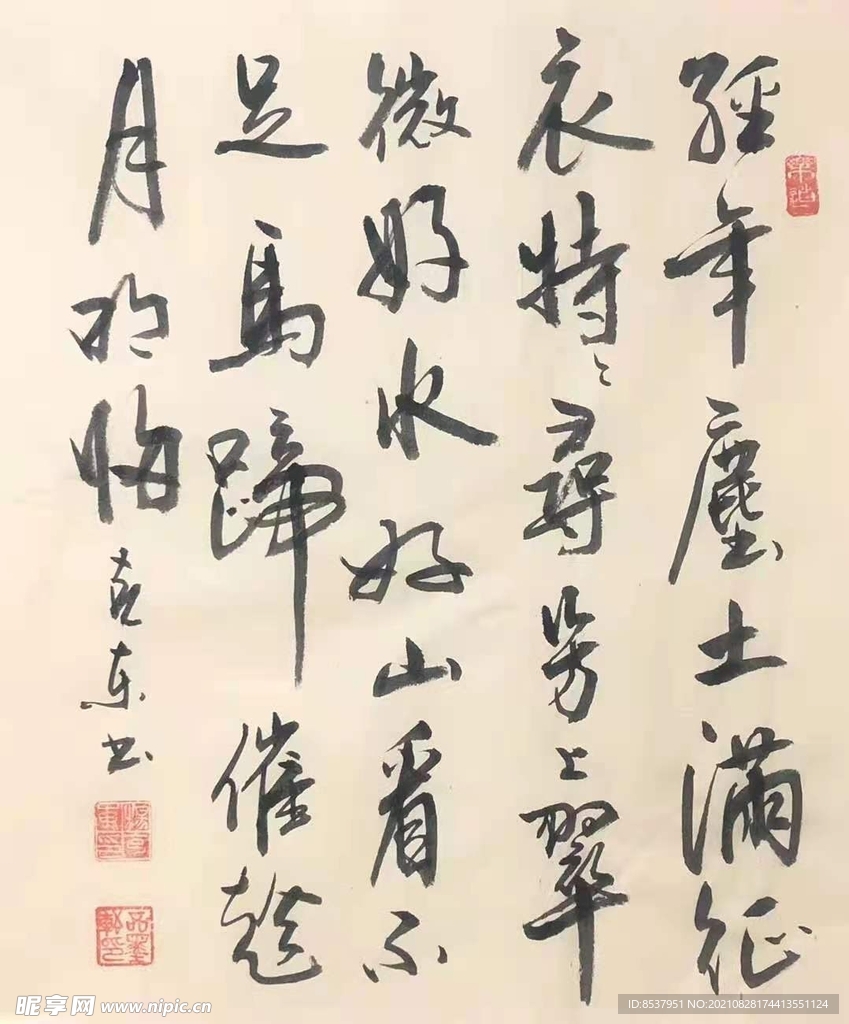 經年塵土滿征
衣特〻尋芳上翠
微好水好山看不
足馬蹄催趁
月明歸
克東书
昵享网 www.nipic.cn
ID:8537951 NO:20210828174413551124